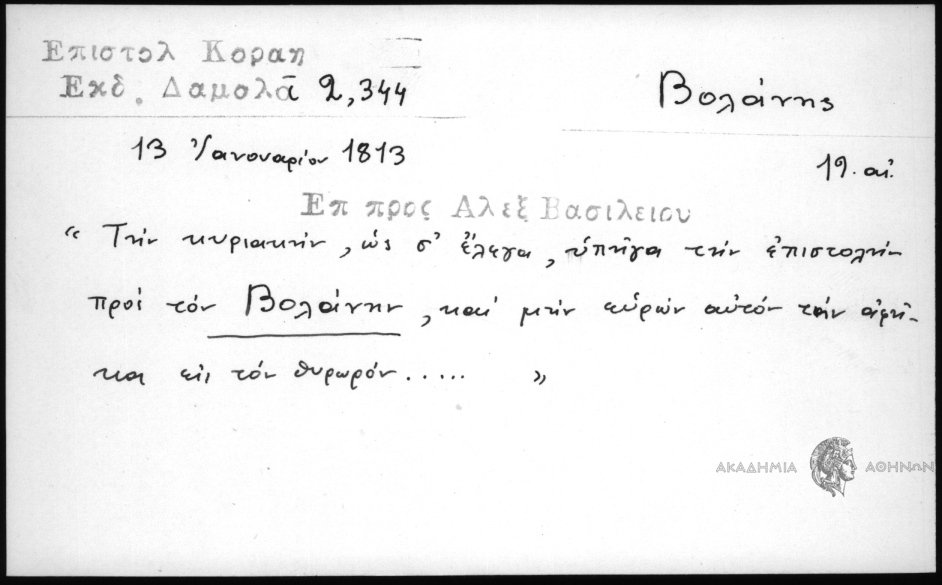 Επιστολ Κοραη
Εκδ. Δαμαλᾶ 2,344
Βολάνης
13 Ἰανουαρίου 1813
19. αἰ.
Επ προς Αλεξ Βασιλειου
“ Τήν κυριακήν, ὡς σ' ἔλεγα, ὑπῆγα τήν ἐπιστολήν
πρός τόν Βολάνην, καί μήν εὑρών αὐτόν τήν ἀφῆ-
κα εἰς τόν θυρωρόν...... ”
ΑΚΑΔΗΜΙΑ ΑΘΗΝΩΝ